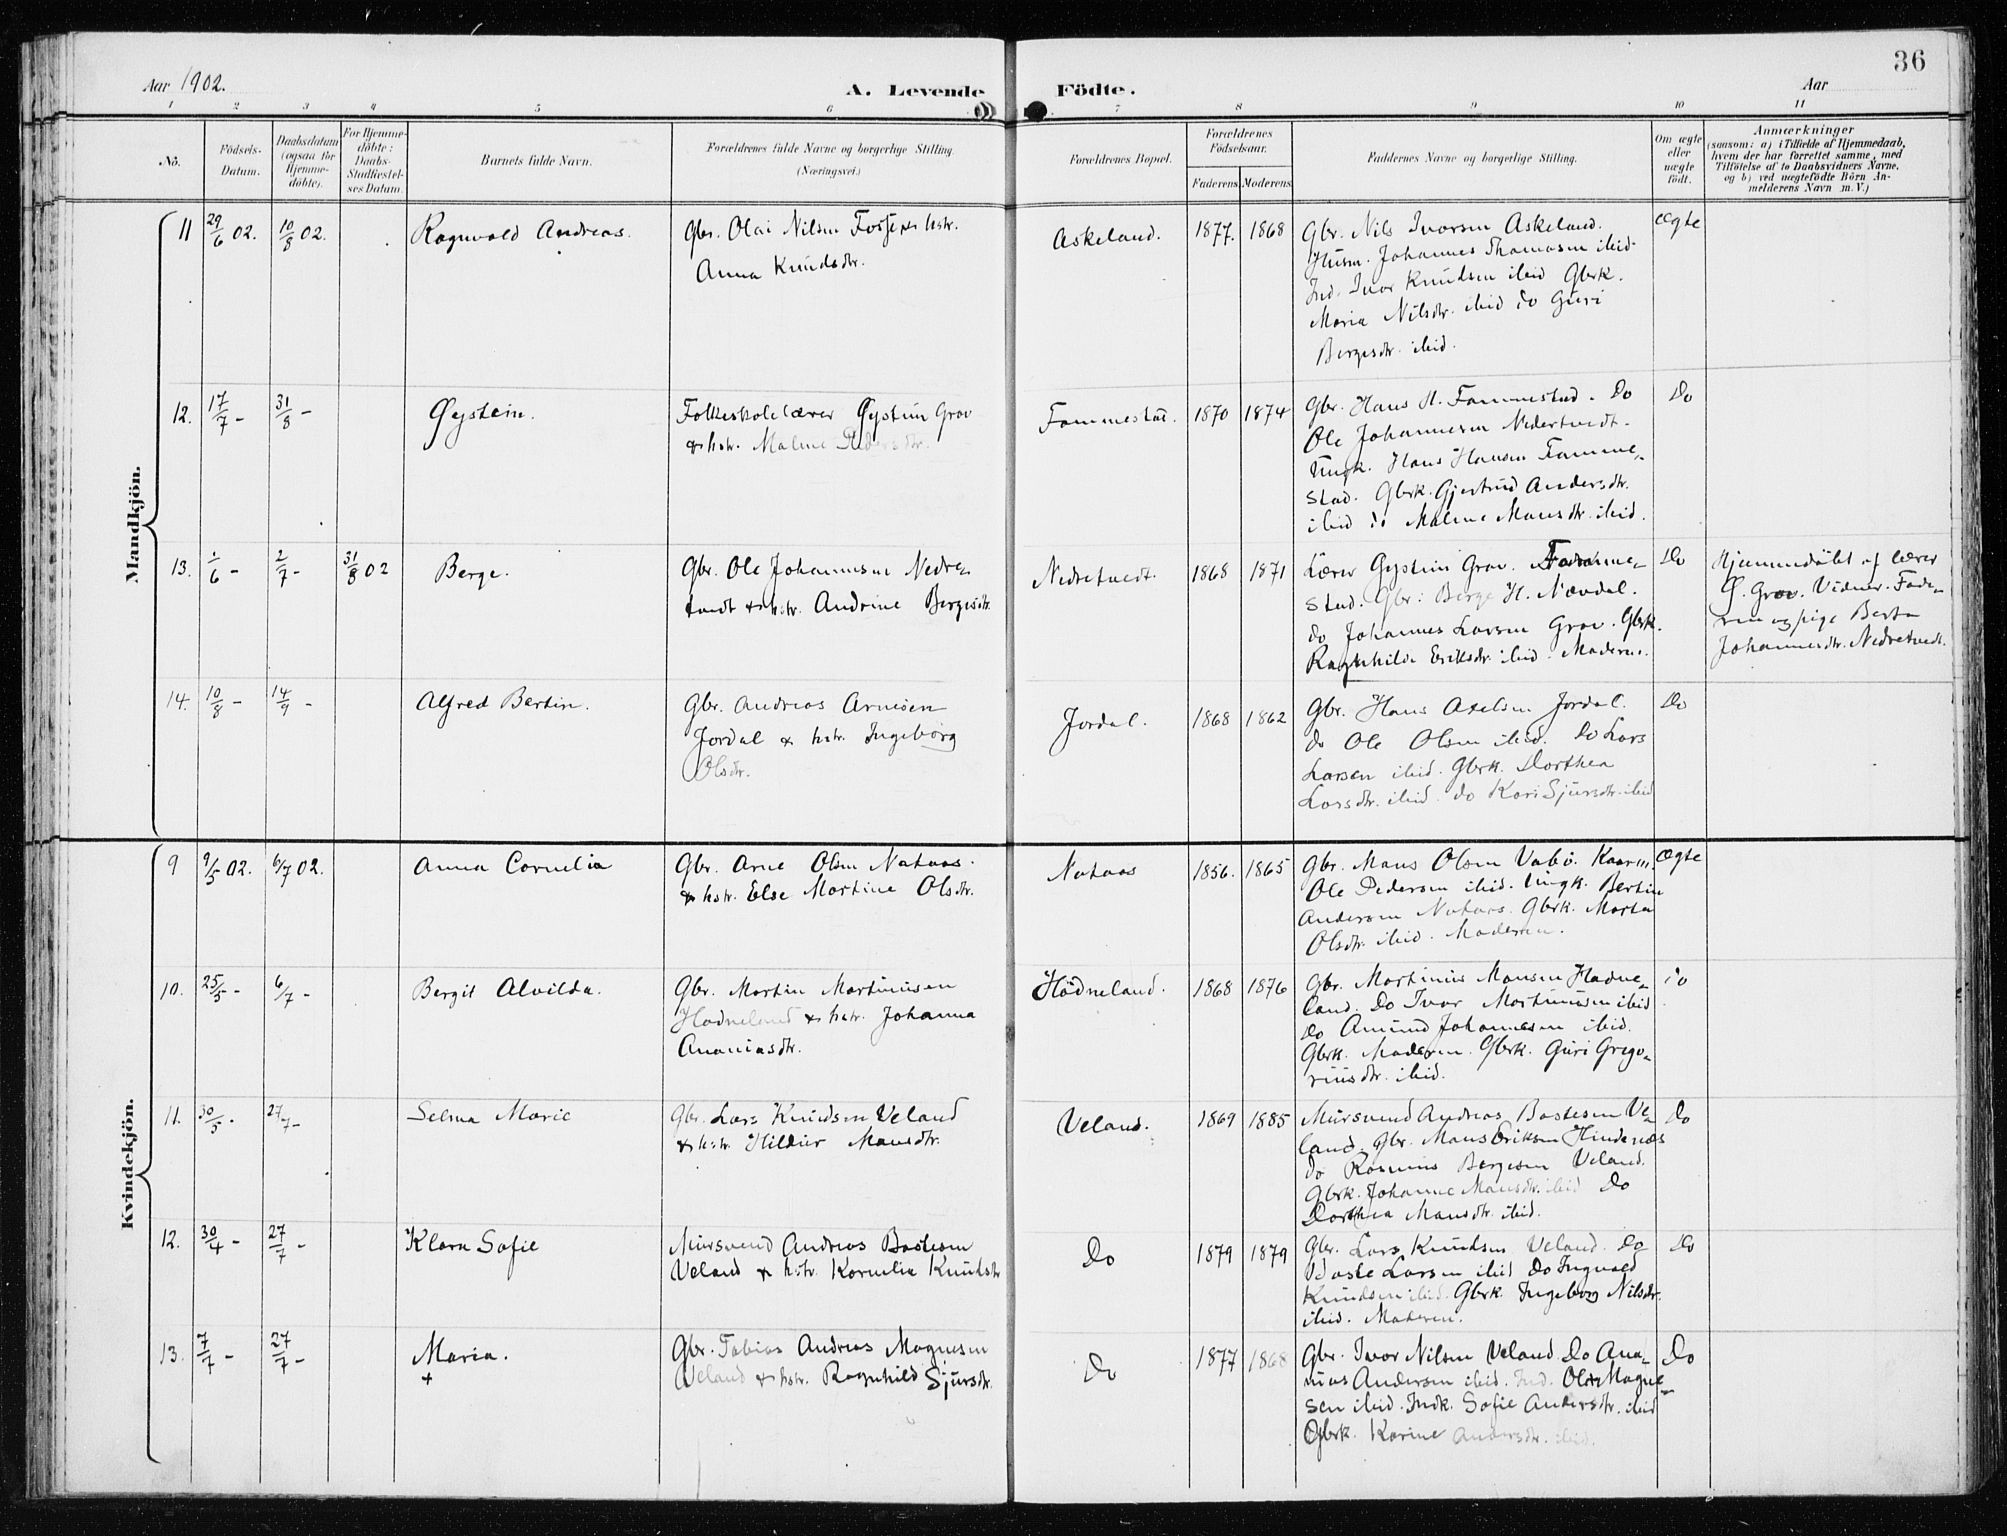 36
Aar 1902.
A. Levende
Födte.
Aar
1 2 3 4 5 6 7 8 9 10 11
No.
Födsels-
Datum.
Daabsdatum
(ogsaa för
Hjemme-
döbte).
For Hjemme-
döbte:
Daabs-
Stadfæstel-
ses Datum.
Barnets fulde Navn.
Forældrenes fulde Navne og borgerlige Stilling.
(Næringsvei.)
Forældrenes Bopæl.
Forældrenes
Födselsaar.
Faderens Moderens
Faddernes Navne og borgerlige Stilling.
Om ægte
eller
uægte
födt.
Anmærkninger
(saasom: a) i Tilfælde af Hjemmedaab,
hvem der har forrettet samme, med
Tilföielse af to Daabsvidners Navne,
og b) ved uægtefödte Börn An-
melderens Navn m. V.)
Mandkjön.
11 29/6 02. 10/8 02.
Ragnvald Andreas.
Gbr. Olai Nilsen Fosse & hstr.
Anna Knudsdtr.
Askeland.
1877. 1868
Gbr. Nils Ivarsen Askeland.
Husm. Johannes Thomasen ibid.
Ind. Ivar Knudsen ibid Gbrk.
Maria Nilsdtr. ibid do Guri
Bergesdtr. ibid.
Ægte
12. 17/7 - 31/8 -
Øystein.
Folkeskolelærer Øystein Grov
& hstr. Malene Pedersdtr.
Fammestad.
1870 1874
Gbr. Hans H. Fammestad. Do
Ole Johannesen Nedertvedt.
Ungk. Hans Hansen Famme-
stad. Gbrk. Gjertrud Andersdtr.
ibid do Malene Mansdtr. ibid.
Do
13. 1/6 - 2/7 - 31/8 02
Berge.
Gbr. Ole Johannesen Nedre-
tvedt & hstr. Andrine Bergesdtr.
Nedretvedt.
1868 1871
Lærer Øystein Grov. Famme-
stad. Gbr: Berge H. Nævdal.
do Johannes Larsen Grov. Gbrk.
Ragnhilde Eriksdtr. ibid. Moderen.
Do
Hjemmedöbt af lærer
Ø. Grov. Vidner. Fade-
ren og pige Berta
Johannesdtr. Nedretvedt.
14. 10/8 - 14/9 -
Alfred Bertin.
Gbr. Andreas Arnesen
Jordal & hstr. Ingeborg
Olsdtr.
Jordal.
1868 1862
Gbr. Hans Axelsen Jordal.
do Ole Olsen ibid. Do Lars
Larsen ibid. Gbrk. Dorthea
Larsdtr. ibid. do Kari Sjursdtr. ibid
Do
Kvindekjön.
9 9/5 02. 6/7 02.
Anna Cornelia
Gbr. Arne Olsen Nataas.
& hstr. Else Martine Olsdtr.
Nataas
1856. 1865
Gbr. Mans Olsen Vabö. Kaarm.
Ole Pedersen ibid. Ungk. Bertin
Andersen Nataas. Gbrk. Marta
Olsdtr. ibid. Moderen.
Ægte
10. 25/5 - 6/7 -
Bergit Alvilda.
Gbr. Martin Martinusen
Hodneland & hstr. Johanna
Ananiasdtr.
Hodneland.
1868 1876
Gbr. Martinus Monsen Hodne-
land. Do Ivar Martinusen ibid
Do Amund Johannesen ibid.
Gbrk. Moderen. Gbrk. Guri Grego-
riusdtr. ibid.
do
11. 30/5 - 27/7 -
Selma Marie
Gbr. Lars Knudsen Veland
& hstr. Hildur Mansdtr.
Veland.
1869 1885
Mursvend Andreas Bastesen Ve-
land. Gbr. Mans Eriksen Hindenæs
do Rasmus Bergesen Veland.
Gbrk. Johanne Mansdtr. ibid Do
Dorthea Mansdtr. ibid.
Do
12. 30/4 - 27/7 -
Klara Sofie
Mursvend Andreas Bastesen
Veland & hstr. Kornelia Knudsdtr
Do
1879 1879
Gbr. Lars Knudsen Veland. Do
Baste Larsen ibid Do Ingvald
Knudsen ibid. Gbrk. Ingeborg Nilsdtr.
ibid. Moderen.
Do
13. 7/7 - 27/7 -
Maria.
+
Gbr. Tobias Andreas Magnesen
Veland & hstr. Ragnhild Sjursdtr.
Do
1877 1868
Gbr. Ivar Nilsen Veland Do Ana-
nias Andersen ibid. Ind. Ole Magne-
sen ibid. Indk. Sofie Andersdtr. ibid
Gbrk. Karine Andersdtr. ibid.
Do